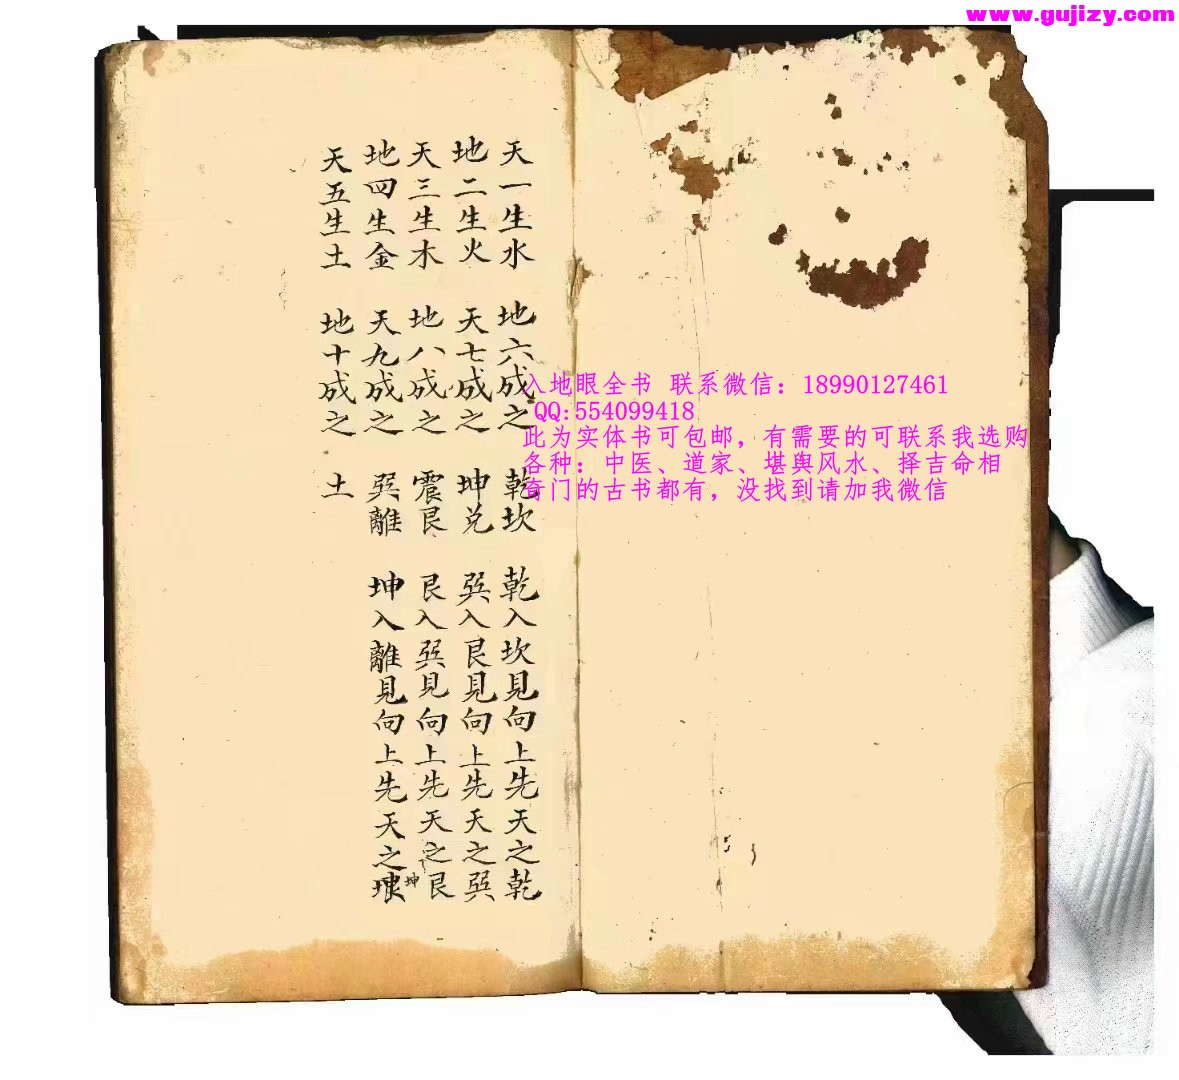 www.gujizy.com
天一生水 地六成之 乾坎 乾入坎見向上先天之乾
地二生火 天七成之 坤兑 巽入艮見向上先天之巽
天三生木 地八成之 震艮 艮入巽見向上先天之艮
地四生金 天九成之 巽離 坤入離見向上先天之坤
天五生土 地十成之 土
入地眼全书 联系微信：18990127461
QQ:554099418
此为实体书可包邮，有需要的可联系我选购
各种：中医、道家、堪舆风水、择吉命相
奇门的古书都有，没找到请加我微信